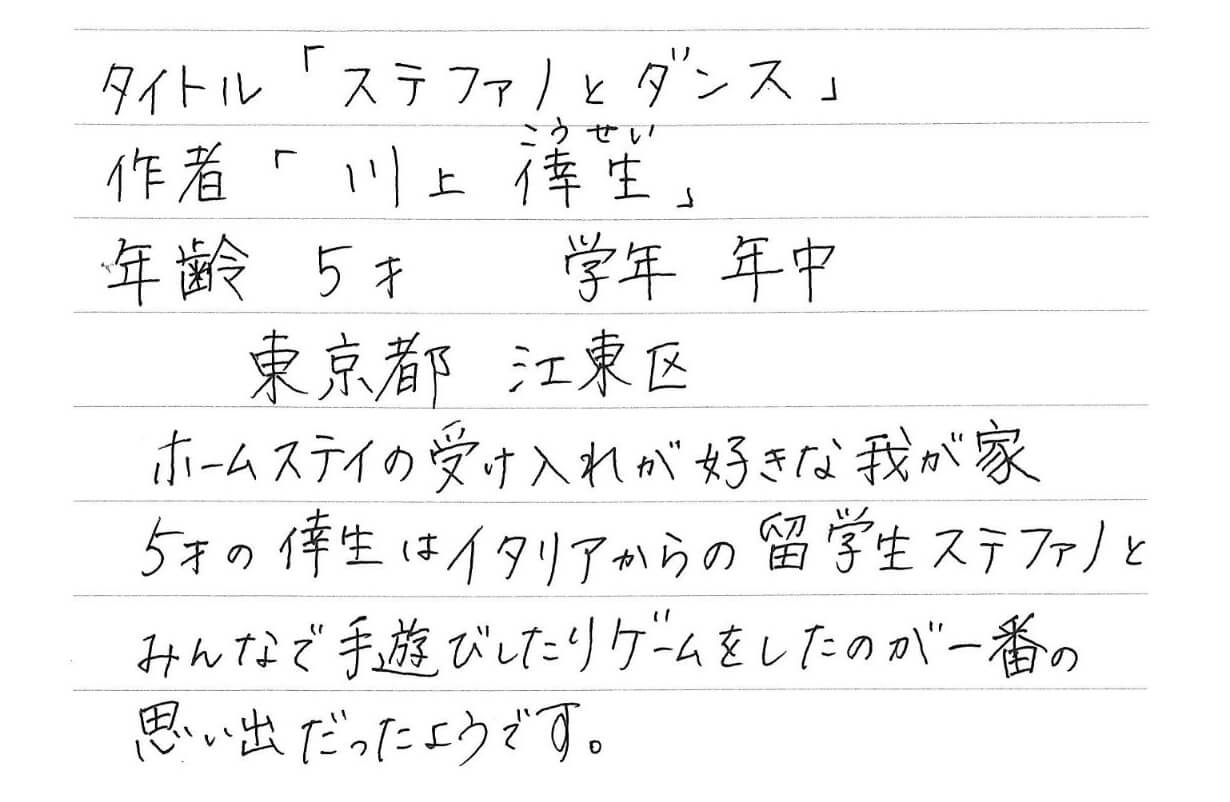 タイトル「ステファノとダンス」
こうせい
作者「川上 倖生」
年齢 5才 学年 年中
東京都 江東区
ホームステイの受け入れが好きな我が家
5才の倖生はイタリアからの留学生ステファノと
みんなで手遊びしたりゲームをしたのが一番の
思い出だったようです。